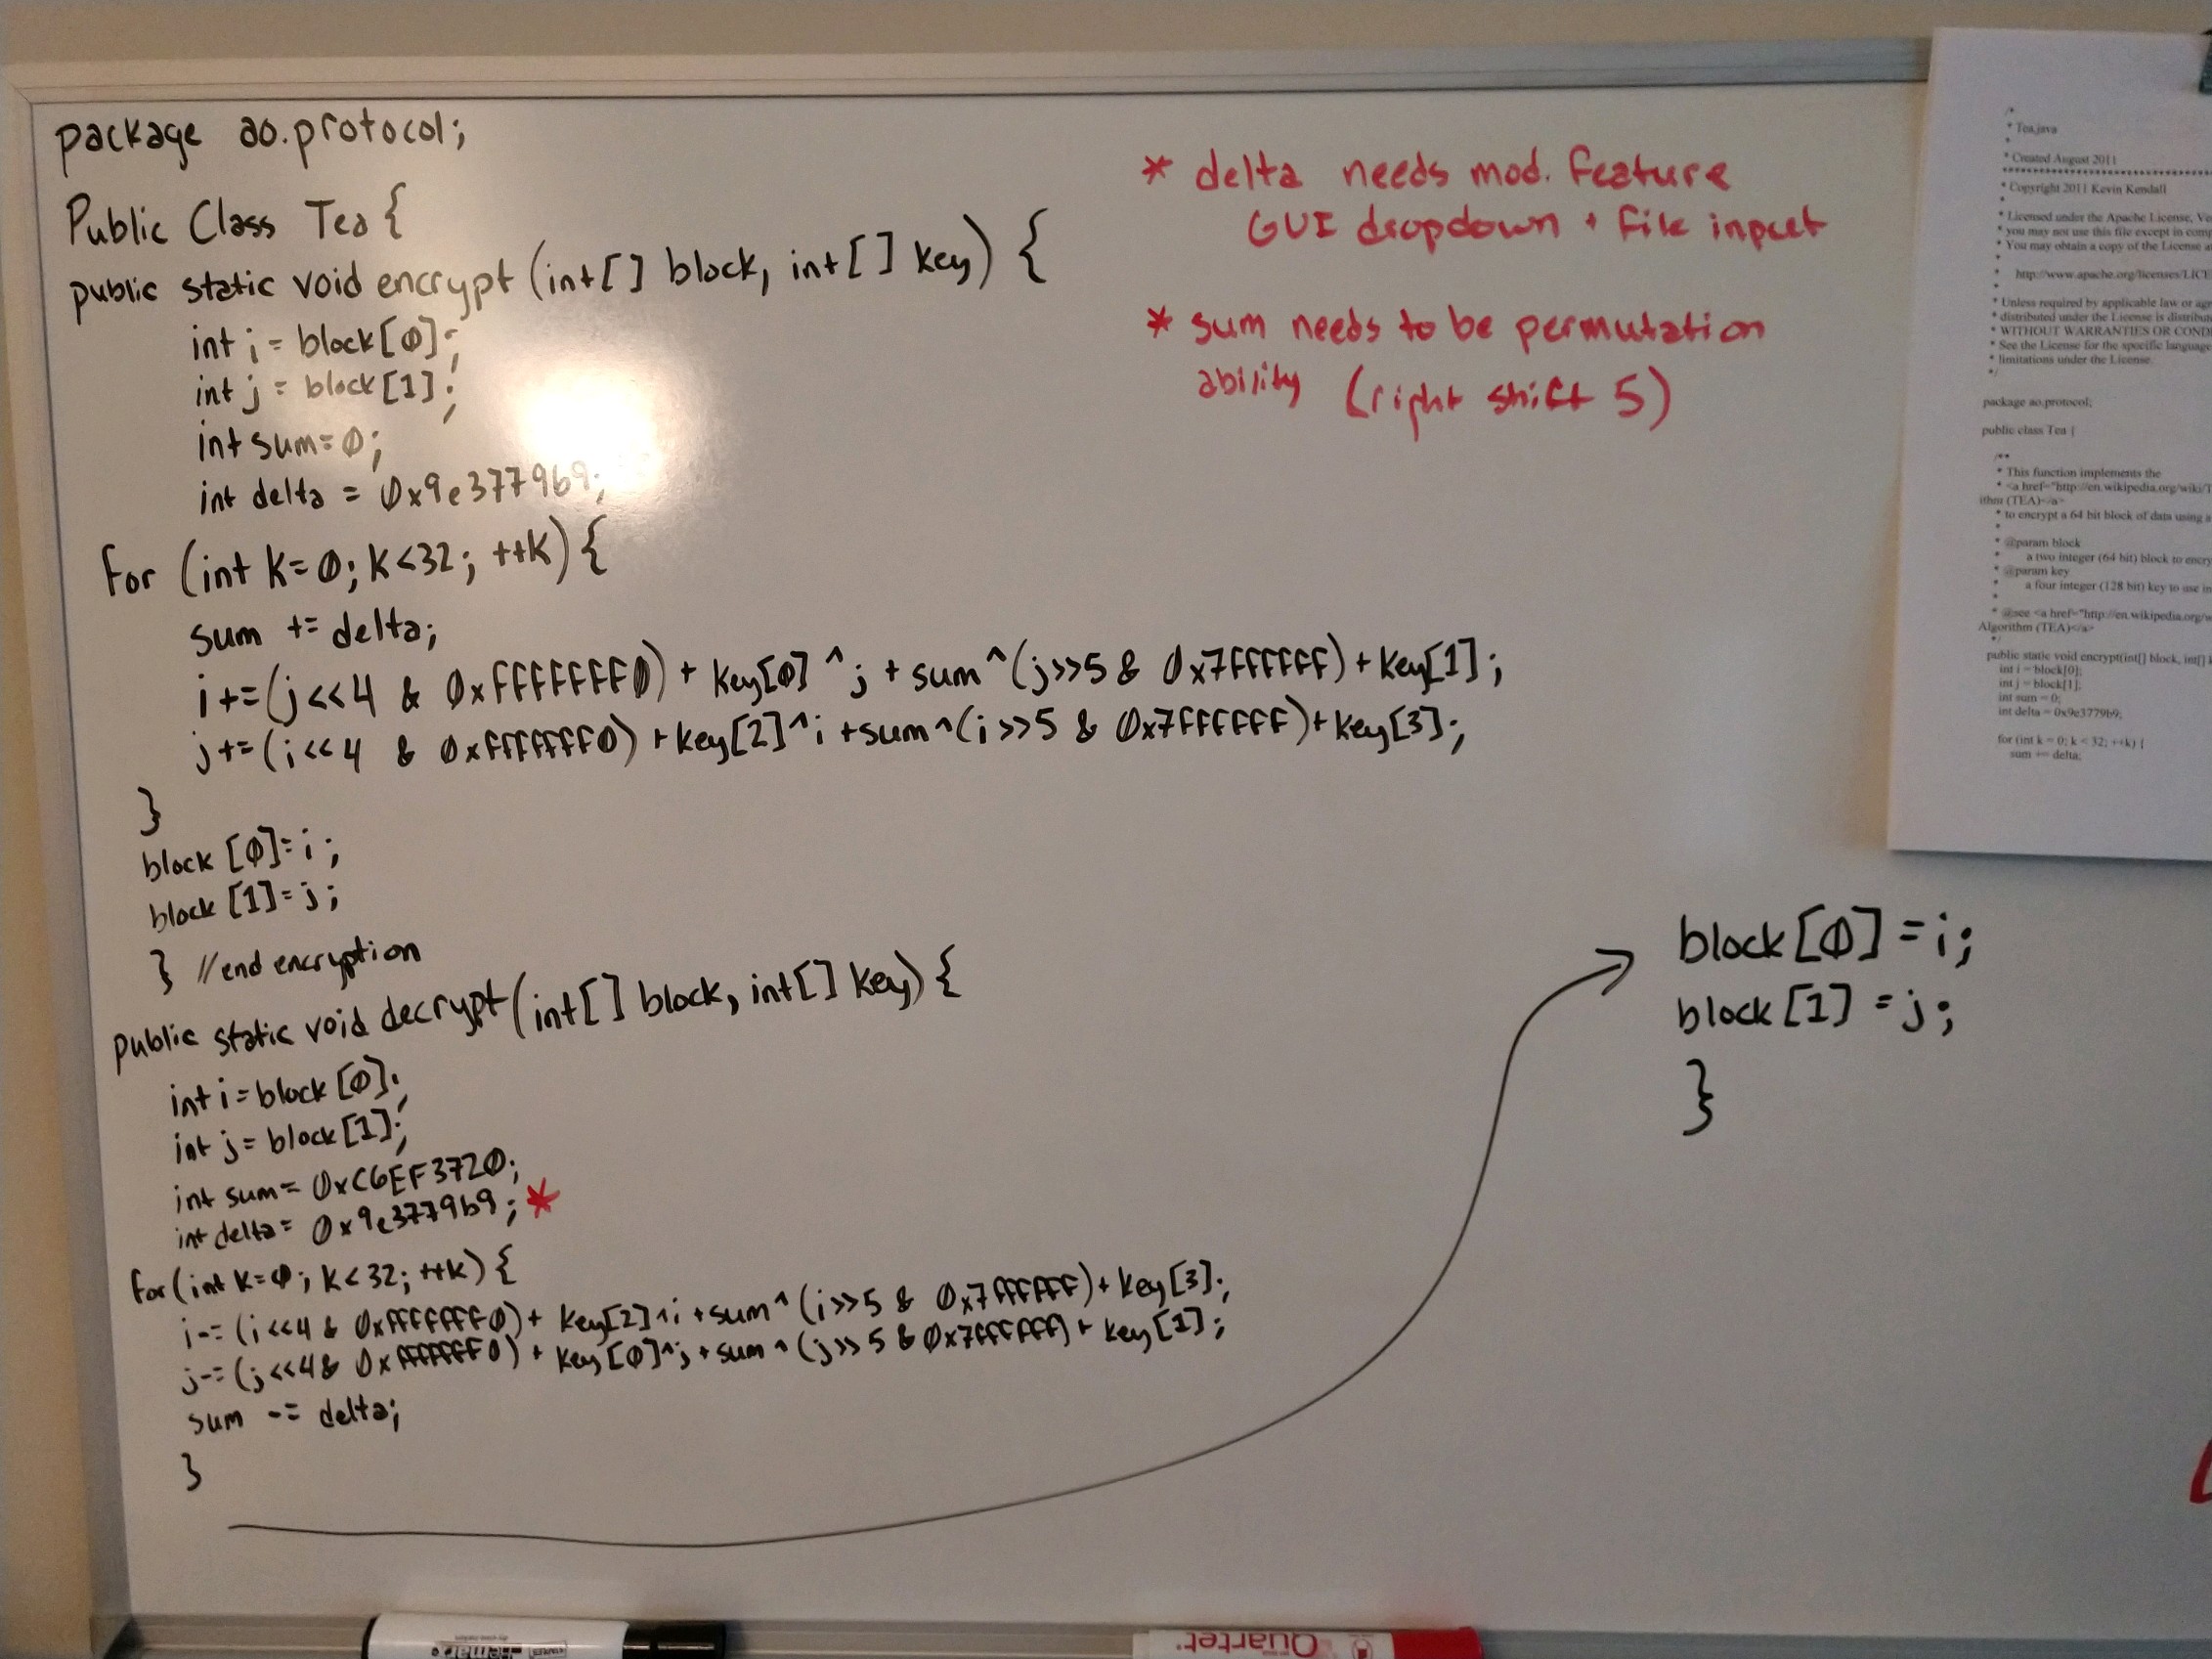 package ao.protocol;
Public Class Tea {
public static void encrypt (int[] block, int[] key) {
int i = block[0];
int j = block[1];
int sum=0;
int delta = 0x9e3779b9;
for (int k=0; k<32; ++k) {
sum += delta;
i+=(j<<4 & 0xfffffff0) + key[0]^j + sum^(j>>5 & 0x7ffffff) + key[1];
j+=(i<<4 & 0xfffffff0) +key[2]^i +sum^(i>>5 & 0x7ffffff)+key[3];
}
block [0]=i;
block [1]=j;
} //end encryption
public static void decrypt (int[] block, int[] key) {
int i=block [0];
int j= block [1];
int sum= 0xC6EF3720;
int delta= 0x9e3779b9; *
for (int k=0; k<32; ++k) {
i-= (i<<4 & 0xfffffff0) + key[2]^i +sum^ (i>>5 & 0x7ffffff)+ key[3];
j-= (j<<4 & 0xfffffff0) + key[0]^j +sum^ (j>>5 & 0x7ffffff) + key[1];
sum -= delta;
}
block [0] =i;
block [1] =j;
}
* delta needs mod. feature
GUI dropdown + file input
* sum needs to be permutation
ability (right shift 5)
/*
* Tea.java
*
* Created August 2011
* Copyright 2011 Kevin Kendall
*
* Licensed under the Apache License,
* you may not use this file except in
* You may obtain a copy of the License
*
* http://www.apache.org/licenses/
*
* Unless required by applicable law or
* distributed under the License is
* WITHOUT WARRANTIES OR
* See the License for the specific language
* limitations under the License.
*/
package ao.protocol;
public class Tea {
/**
* This function implements the
* <a href="http://en.wikipedia.org/wiki/
ithm (TEA)</a>
* to encrypt a 64 bit block of data using
*
* @param block
* a two integer (64 bit) block to
* @param key
* a four integer (128 bit) key to use
*
* @see <a href="http://en.wikipedia.org/
Algorithm (TEA)</a>
*/
public static void encrypt(int[] block, int[]
int i = block[0];
int j = block[1];
int sum = 0;
int delta = 0x9e3779b9;
for (int k = 0; k < 32; ++k) {
sum += delta;
Quartet